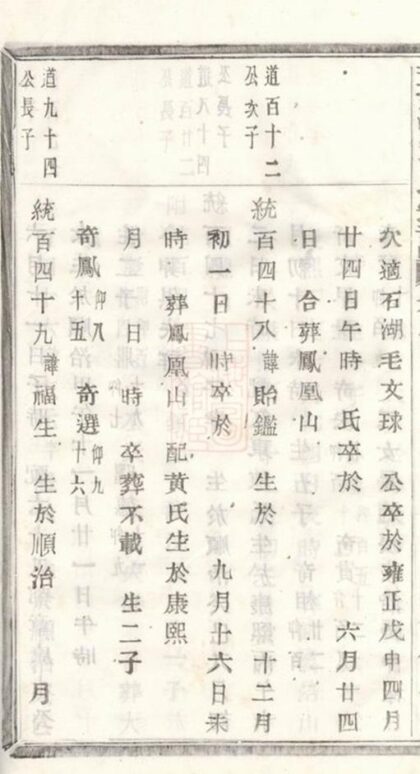 次適石湖毛文球 公卒於雍正戊申四月
廿四日午時 氏卒於 六月廿四
日 合葬鳳凰山
道百十二
公次子
統百四十八諱貽鑑 生於 十二月
初一日 時卒於 九月十六日未
時 葬鳳凰山 配黃氏生於康熙
月 日 時卒葬不載 生二子
奇鳳仰八十五 奇選仰九十六
道九十四
公長子
統百四十九諱福生 生於順治 月